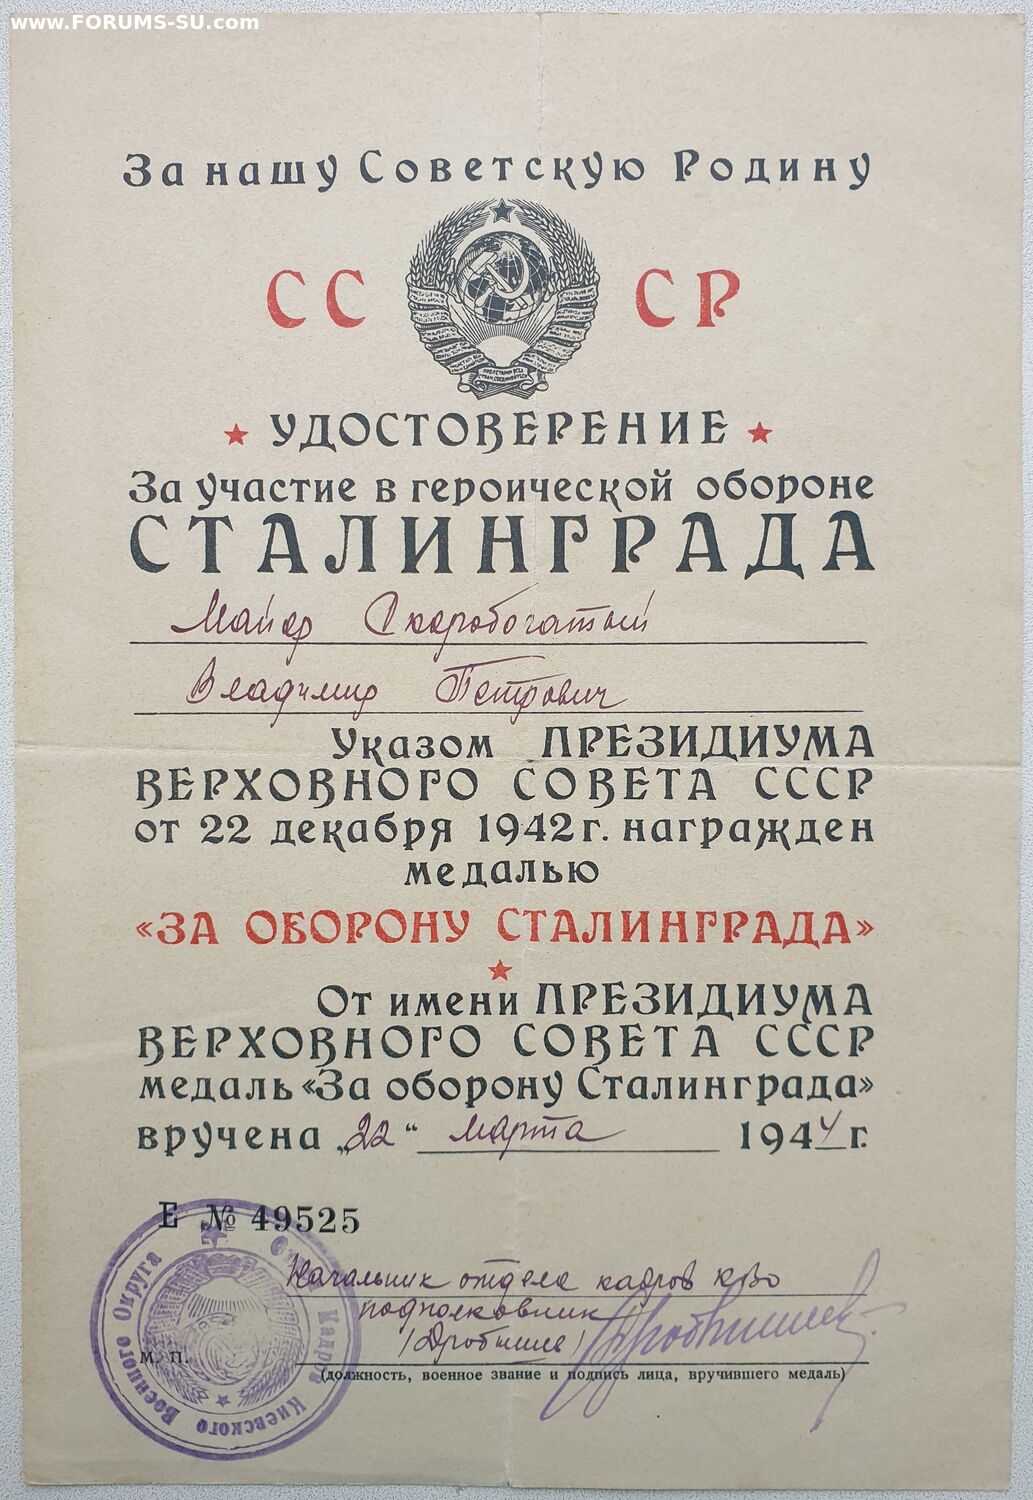 www.FORUMS-SU.com
За нашу Советскую Родину
СС СР
ПРОЛЕТАРИИ ВСЕХ
СТРАН, СОЕДИНЯЙТЕСЬ
УДОСТОВЕРЕНИЕ
За участие в героической обороне
СТАЛИНГРАДА
Майор Скоробогатый
Владимир Петрович
Указом ПРЕЗИДИУМА
ВЕРХОВНОГО СОВЕТА СССР
от 22 декабря 1942 г. награжден
медалью
«ЗА ОБОРОНУ СТАЛИНГРАДА»
От имени ПРЕЗИДИУМА
ВЕРХОВНОГО СОВЕТА СССР
медаль «За оборону Сталинграда»
вручена „22“ марта 1944 г.
Е № 49525
Отдел Кадров Киевского Военного Округа
Начальник отдела кадров КВО
подполковник
м. п.
(должность, военное звание и подпись лица, вручившего медаль)